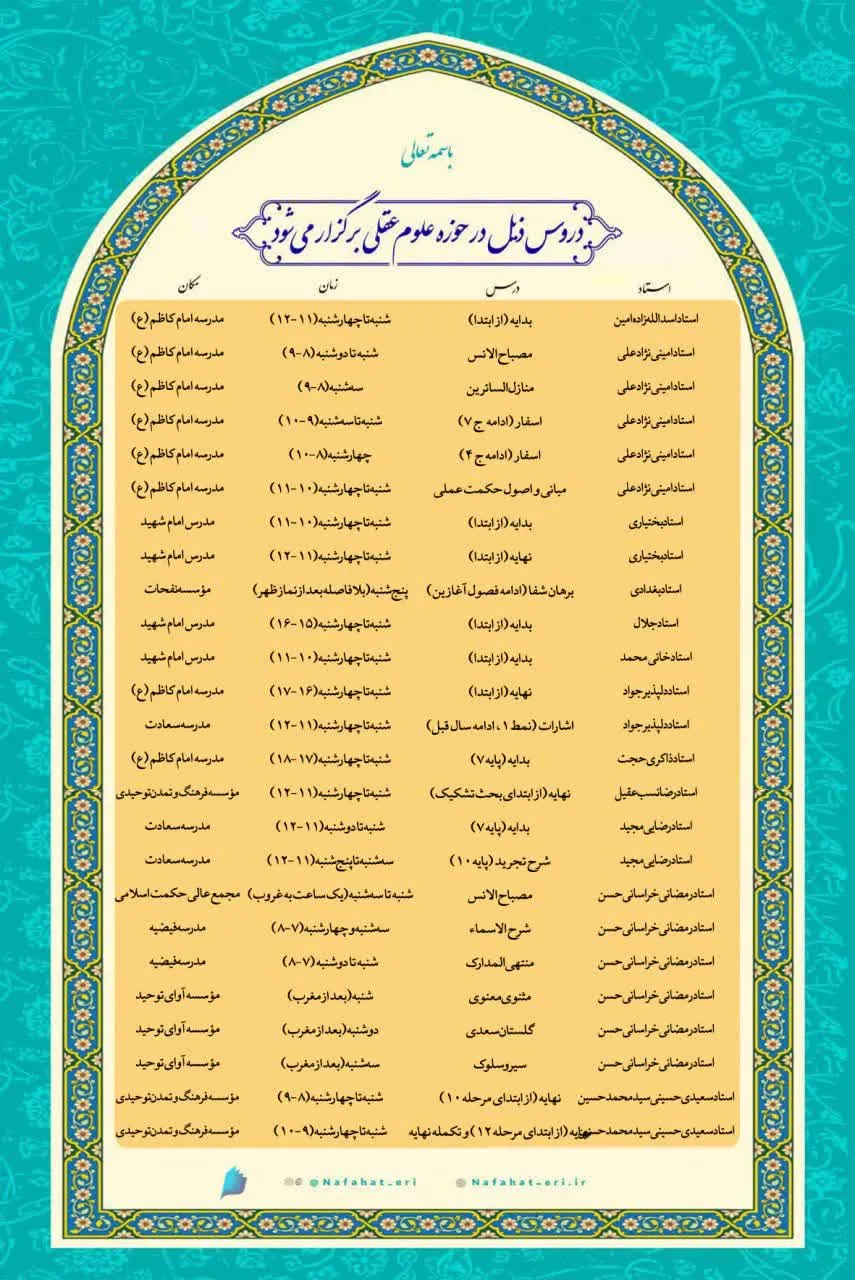 باسمه تعالی
دروس ذیل در حوزه علوم عقلی برگزار می شود
استاد درس زمان مکان
استاد اسدالله زاده امین بدایه (از ابتدا) شنبه تا چهارشنبه (۱۱-۱۲) مدرسه امام کاظم (ع)
استاد امینی نژاد علی مصباح الانس شنبه تا دوشنبه (۸-۹) مدرسه امام کاظم (ع)
استاد امینی نژاد علی منازل السائرین سه شنبه (۸-۹) مدرسه امام کاظم (ع)
استاد امینی نژاد علی اسفار (ادامه ج ۷) شنبه تا سه شنبه (۹-۱۰) مدرسه امام کاظم (ع)
استاد امینی نژاد علی اسفار (ادامه ج ۴) چهارشنبه (۸-۱۰) مدرسه امام کاظم (ع)
استاد امینی نژاد علی مبانی و اصول حکمت عملی شنبه تا چهارشنبه (۱۰-۱۱) مدرسه امام کاظم (ع)
استاد بختیاری بدایه (از ابتدا) شنبه تا چهارشنبه (۱۰-۱۱) مدرس امام شهید
استاد بختیاری نهایه (از ابتدا) شنبه تا چهارشنبه (۱۱-۱۲) مدرس امام شهید
استاد بغدادی برهان شفا (ادامه فصول آغازین) پنج شنبه (بلافاصله بعد از نماز ظهر) مؤسسه نفحات
استاد جلال بدایه (از ابتدا) شنبه تا چهارشنبه (۱۵-۱۶) مدرس امام شهید
استاد خانی محمد بدایه (از ابتدا) شنبه تا چهارشنبه (۱۰-۱۱) مدرس امام شهید
استاد دلپذیر جواد نهایه (از ابتدا) شنبه تا چهارشنبه (۱۶-۱۷) مدرسه امام کاظم (ع)
استاد دلپذیر جواد اشارات (نمط ۱، ادامه سال قبل) شنبه تا چهارشنبه (۱۱-۱۲) مدرسه سعادت
استاد ذاکری حجت بدایه (پایه ۷) شنبه تا چهارشنبه (۱۷-۱۸) مدرسه امام کاظم (ع)
استاد رضانسب عقیل نهایه (از ابتدای بحث تشکیک) شنبه تا چهارشنبه (۱۱-۱۲) مؤسسه فرهنگ و تمدن توحیدی
استاد رضایی مجید بدایه (پایه ۷) شنبه تا دوشنبه (۱۱-۱۲) مدرسه سعادت
استاد رضایی مجید شرح تجرید (پایه ۱۰) سه شنبه تا پنج شنبه (۱۱-۱۲) مدرسه سعادت
استاد رمضانی خراسانی حسن مصباح الانس شنبه تا سه شنبه (یک ساعت به غروب) مجمع عالی حکمت اسلامی
استاد رمضانی خراسانی حسن شرح الاسماء سه شنبه و چهارشنبه (۷-۸) مدرسه فیضیه
استاد رمضانی خراسانی حسن منتهی المدارک شنبه تا دوشنبه (۷-۸) مدرسه فیضیه
استاد رمضانی خراسانی حسن مثنوی معنوی شنبه (بعد از مغرب) مؤسسه آوای توحید
استاد رمضانی خراسانی حسن گلستان سعدی دوشنبه (بعد از مغرب) مؤسسه آوای توحید
استاد رمضانی خراسانی حسن سیر و سلوک سه شنبه (بعد از مغرب) مؤسسه آوای توحید
استاد سعیدی حسینی سید محمد حسین نهایه (از ابتدای مرحله ۱۰) شنبه تا چهارشنبه (۸-۹) مؤسسه فرهنگ و تمدن توحیدی
استاد سعیدی حسینی سید محمد حسین نهایه (از ابتدای مرحله ۱۲) و تکمله نهایه شنبه تا چهارشنبه (۹-۱۰) مؤسسه فرهنگ و تمدن توحیدی
@Nafahat_eri Nafahat-eri.ir